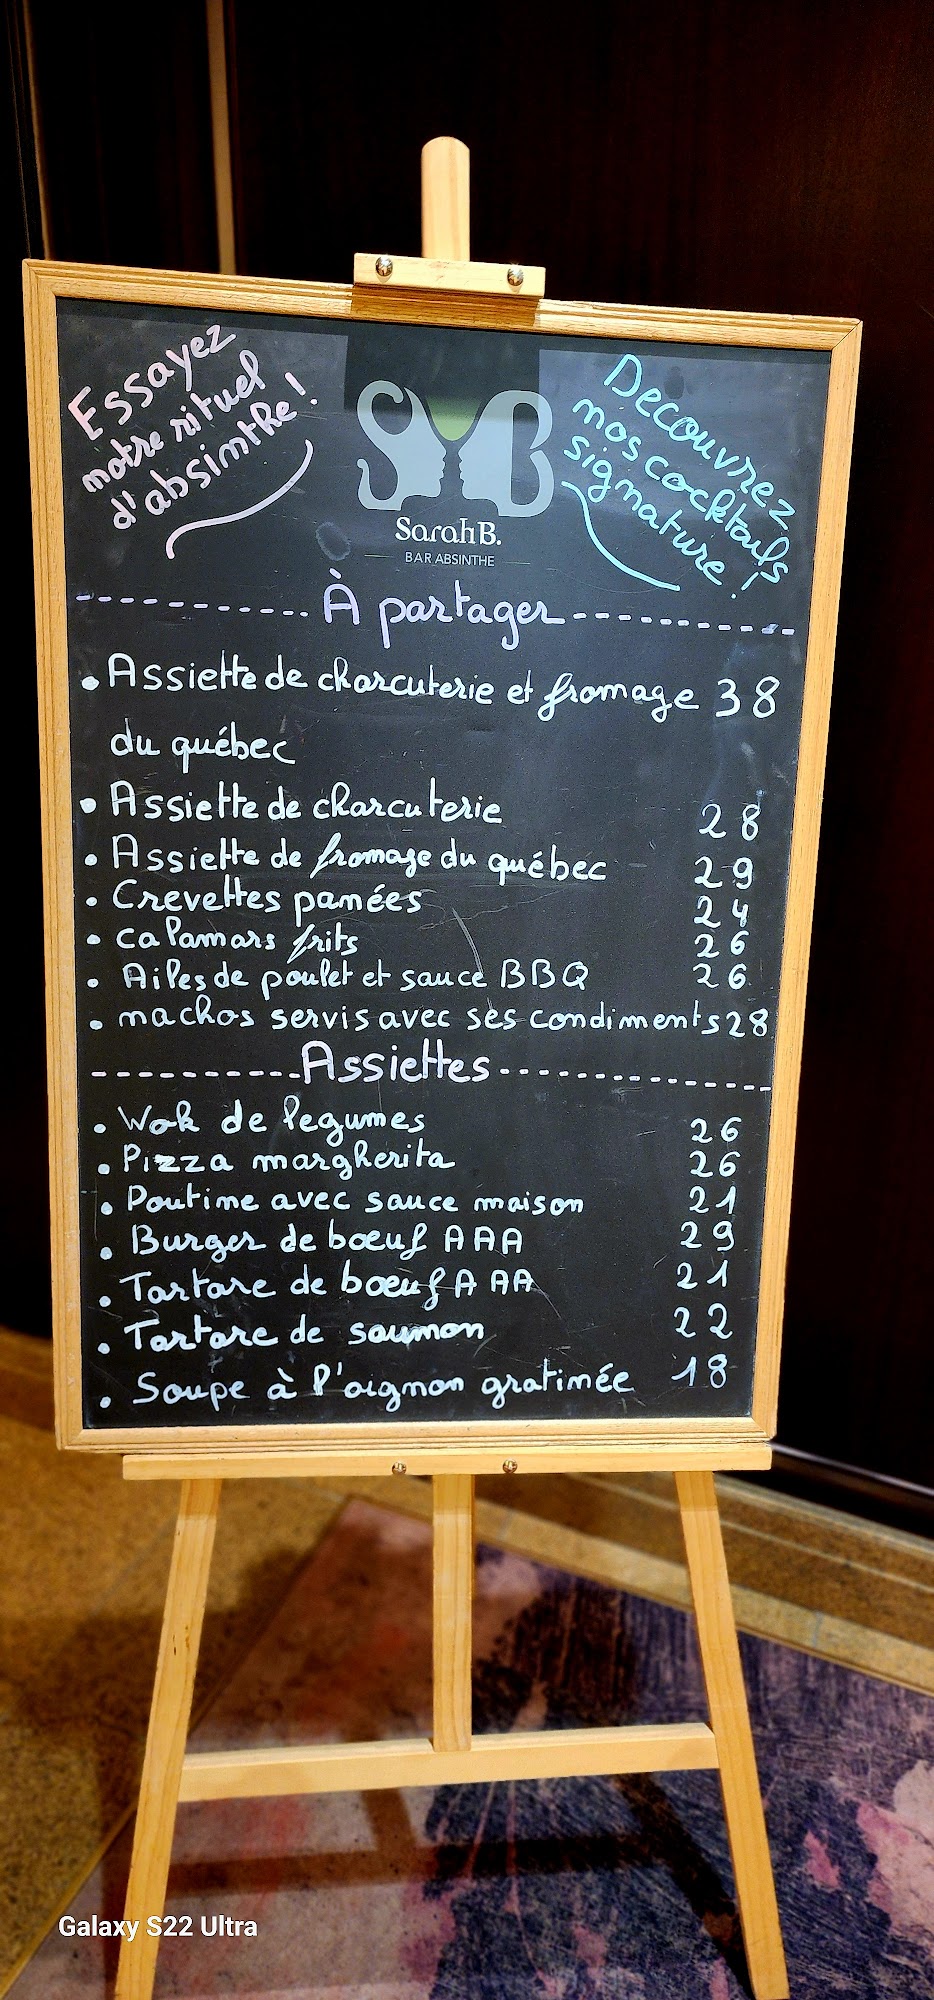 Essayez
notre rituel
d'absinthe !
Decouvrez
nos cocktails
signature !
SB
Sarah B.
BAR ABSINTHE
À partager
• Assiette de charcuterie et fromage 38
du québec
• Assiette de charcuterie 28
• Assiette de fromage du québec 29
• Crevettes panées 24
• calamars frits 26
• Ailes de poulet et sauce BBQ 26
• nachos servis avec ses condiments 28
Assiettes
• Wok de legumes 26
• Pizza margherita 26
• Poutine avec sauce maison 21
• Burger de bœuf AAA 29
• Tartare de bœuf AAA 21
• Tartare de saumon 22
• Soupe à l'oignon gratinée 18
Galaxy S22 Ultra